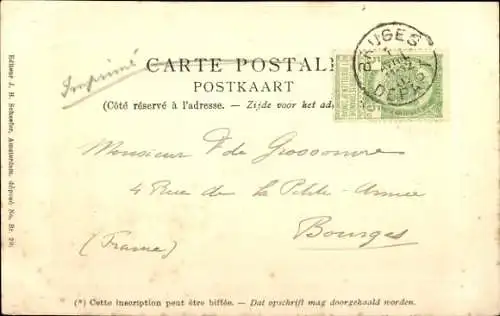 BRUGES
DEPART
Imprimé
CARTE POSTALE
POSTKAART
(Côté réservé à l'adresse. – Zijde voor het
Monsieur F de Grossouvre
4 Rue de la Petite-Armée
Bourges
(France)
(*) Cette inscription peut être biffée. – Dat opschrift mag doorgehaald worden.
Editeur J. H. Schaefer, Amsterdam, déposé No. Br.